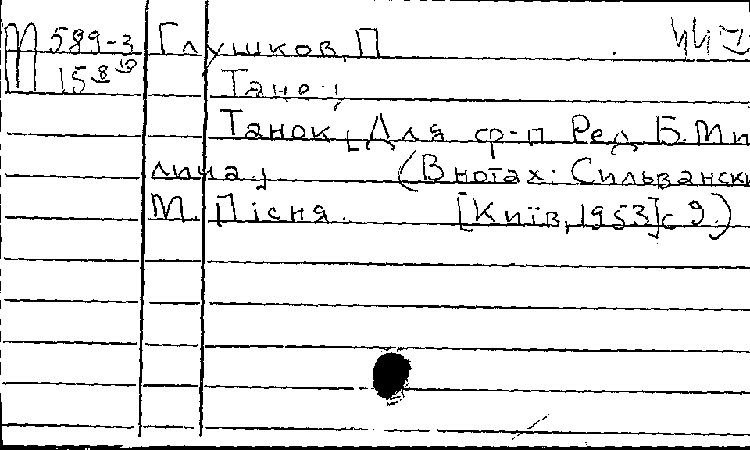 М 589-3 Глушков, П
15
Танец
Танок, Для ср-п Ред Б. Ми
лича, (В нотах: Сильвански
М. Пісня. [Київ, 1953] с 9.)